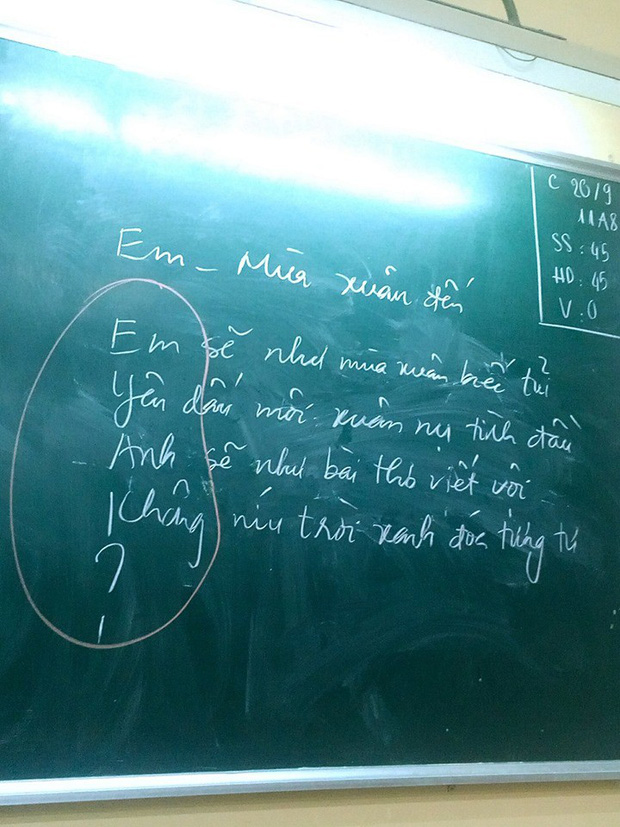 Em - Mùa xuân đến
Em sẽ như mùa xuân biếc tủ
Yên dấu môi xuân nụ tình đầu
Anh sẽ như bài thơ viết vội
Không níu trời xanh đóa tương tư
?
C 20/9
11A8
SS: 45
HD: 45
V: 0